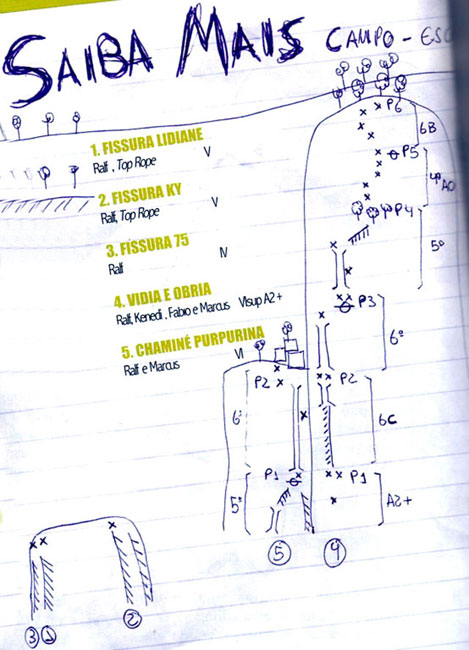 SAIBA MAIS CAMPO - ESC
1. FISSURA LIDIANE
Ralf , Top Rope V
2. FISSURA KY
Ralf, Top Rope V
3. FISSURA 75
Ralf IV
4. VIDIA E OBRIA
Ralf, Kenedi , Fabio e Marcus VIsup A2 +
5. CHAMINÉ PURPURINA
Ralf e Marcus VI
P6
6B
P5
A0
P4
5º
P3
6º
P2
P2
6º
6C
P1
P1
5º
A2+
5
4
3
1
2